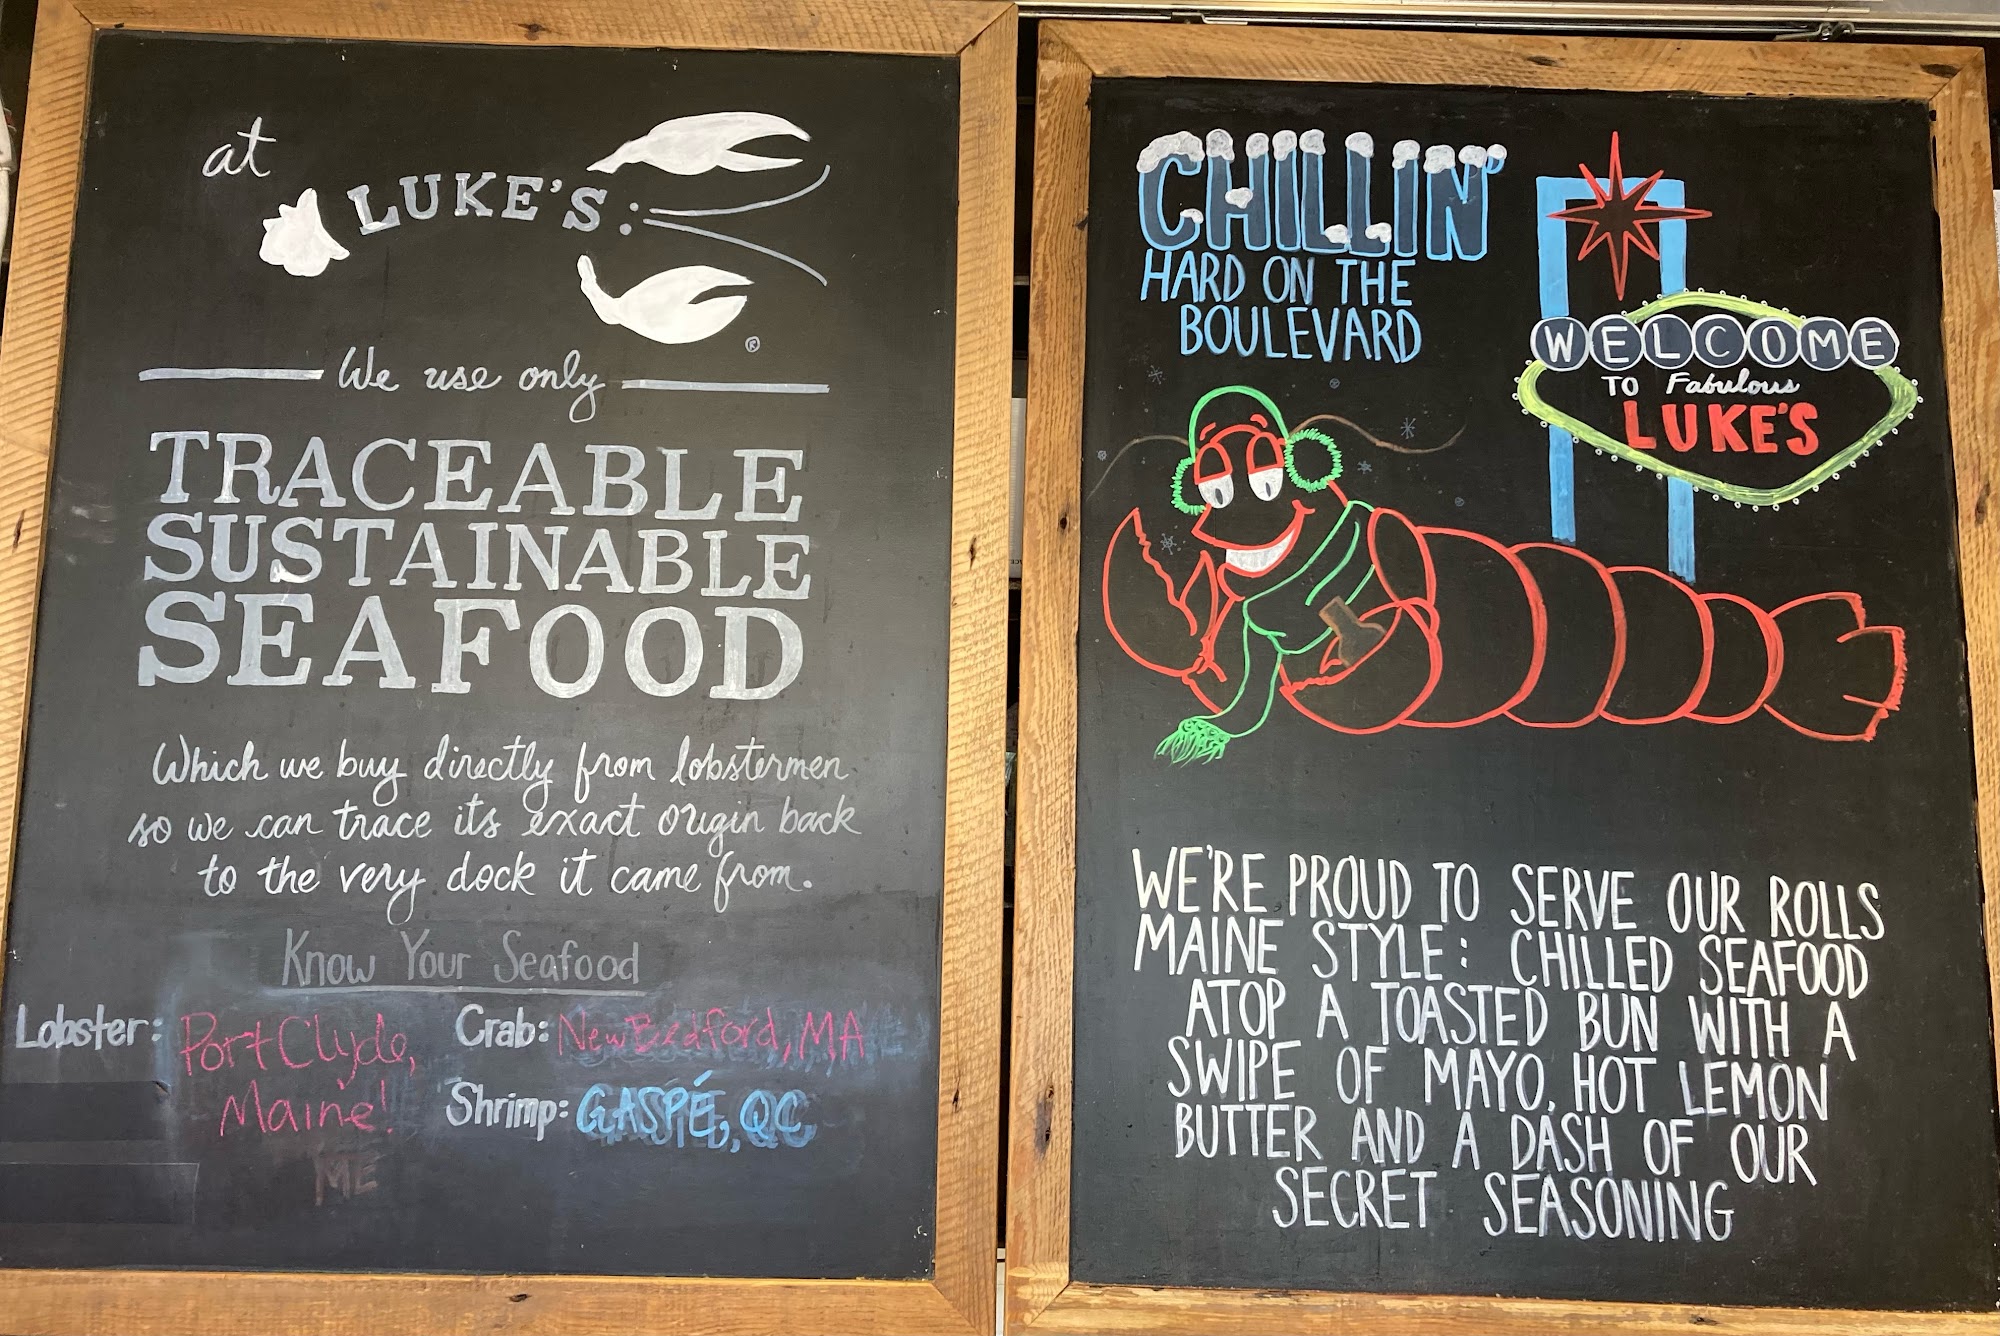 at
LUKE'S:
®
We use only
TRACEABLE
SUSTAINABLE
SEAFOOD
Which we buy directly from lobstermen
so we can trace its exact origin back
to the very dock it came from.
Know Your Seafood
Lobster: Port Clyde,
Maine!
ME
Crab: New Bedford, MA
Shrimp: GASPÉ, QC
CHILLIN'
HARD ON THE
BOULEVARD
WELCOME
TO Fabulous
LUKE'S
WE'RE PROUD TO SERVE OUR ROLLS
MAINE STYLE: CHILLED SEAFOOD
ATOP A TOASTED BUN WITH A
SWIPE OF MAYO, HOT LEMON
BUTTER AND A DASH OF OUR
SECRET SEASONING